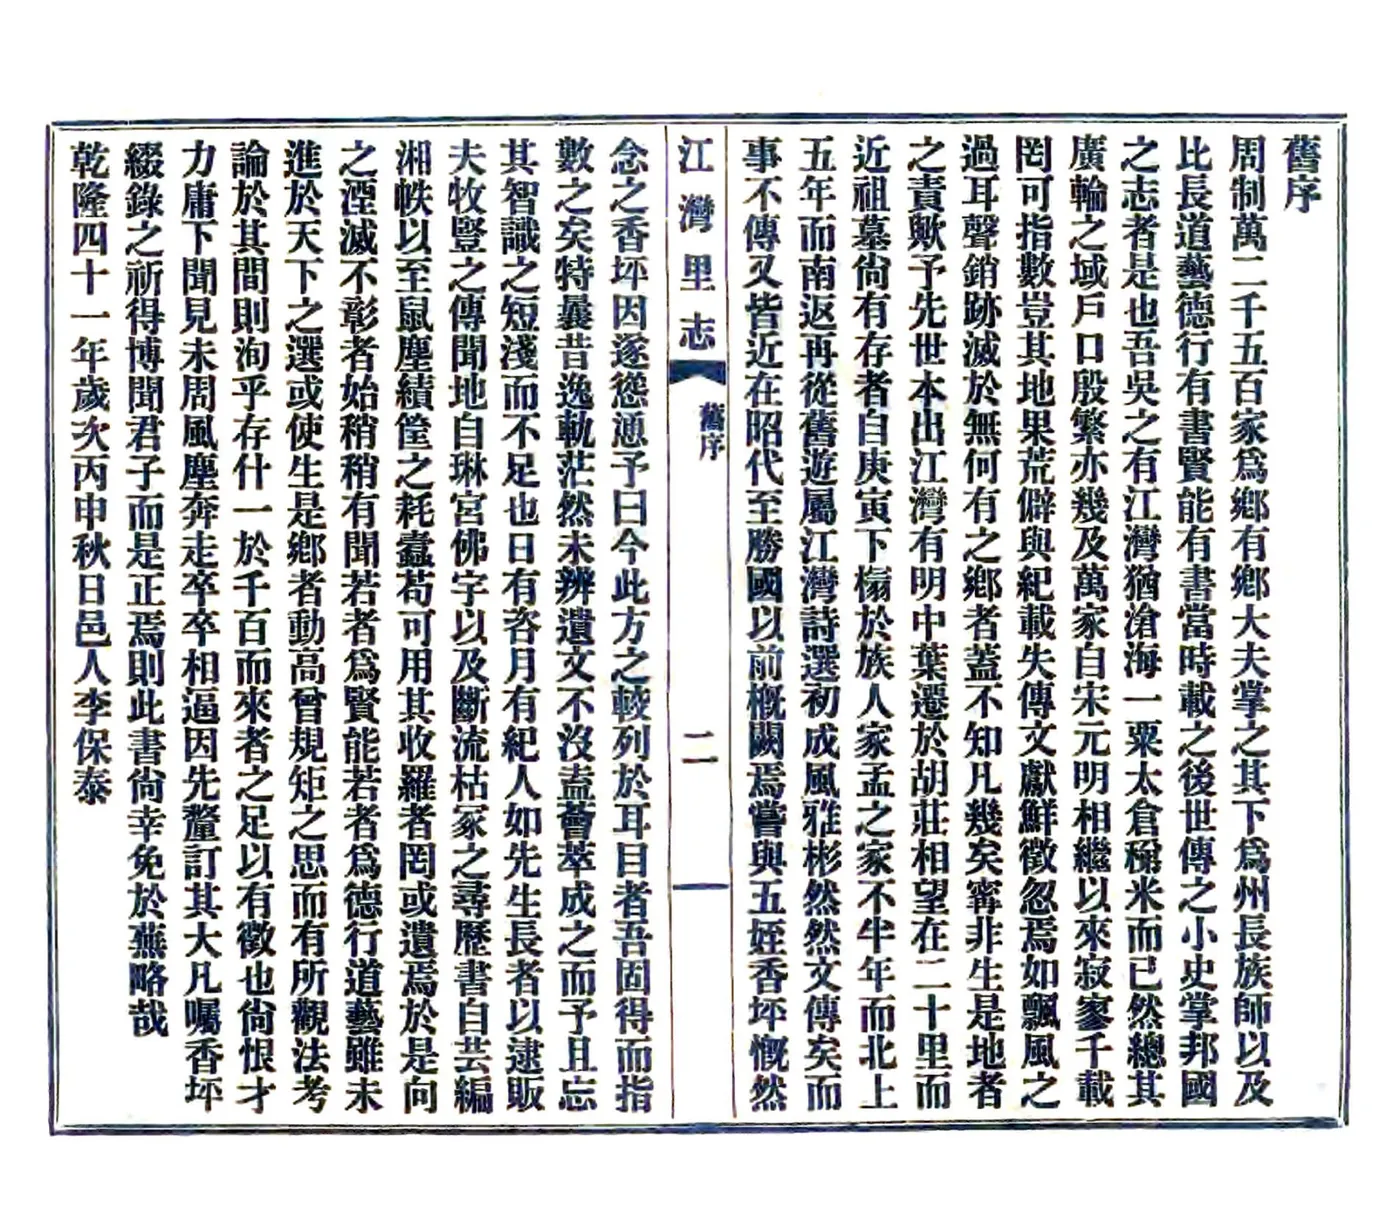 舊序
周制萬二千五百家爲鄉有鄉大夫掌之其下爲州長族師以及
比長道藝德行有書賢能有書當時載之後世傳之小史掌邦國
之志者是也吾吳之有江灣猶滄海一粟太倉稊米而已然總其
廣輪之域戶口殷繁亦幾及萬家自宋元明相繼以來寂寥千載
罔可指數豈其地果荒僻與紀載失傳文獻鮮徵忽焉如飄風之
過耳聲銷跡滅於無何有之鄉者蓋不知凡幾矣寗非生是地者
之責歟予先世本出江灣有明中葉遷於胡莊相望在二十里而
近祖墓尙有存者自庚寅下榻於族人家孟之家不半年而北上
五年而南返再從舊遊屬江灣詩選初成風雅彬然然文傳矣而
事不傳又皆近在昭代至勝國以前槪闕焉嘗與五姪香坪慨然
江灣里志
舊序
二
念之香坪因遂慫恿予曰今此方之較列於耳目者吾固得而指
數之矣特曩昔逸軌茫然未辨遺文不沒盍薈萃成之而予且忘
其智識之短淺而不足也日有咨月有紀人如先生長者以逮販
夫牧豎之傳聞地自琳宮佛字以及斷流枯冢之尋歷書自芸編
湘帙以至鼠塵績筐之耗蠹苟可用其收羅者罔或遺焉於是向
之湮滅不彰者始稍稍有聞若者爲賢能若者爲德行道藝雖未
進於天下之選或使生是鄉者動高曾規矩之思而有所觀法考
論於其間則洵乎存什一於千百而來者之足以有徵也尙恨才
力庸下聞見未周風塵奔走卒卒相逼因先釐訂其大凡囑香坪
綴錄之祈得博聞君子而是正焉則此書尙幸免於蕪略哉
乾隆四十一年歲次丙申秋日邑人李保泰